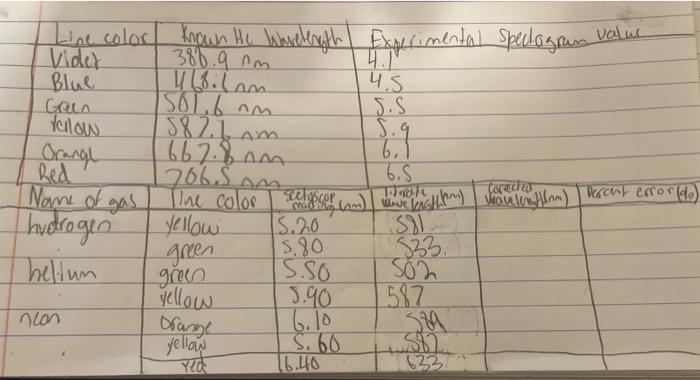 Line color Known He Wavelength Experimental Spectogram value
Violet 386.9 nm 4.1
Blue 468.6 nm 4.5
Green 501.6 nm 5.5
Yellow 587.1 nm 5.9
Orange 667.8 nm 6.1
Red 706.5 nm 6.5
Name of gas line color reading (nm) wavelength (nm) Corrected wavelength (nm) Percent error (%)
hydrogen yellow 5.20 581
green 5.80 533.
helium green 5.50 502
yellow 5.90 587
neon orange 6.10 589
yellow 5.60 582
red 6.40 633